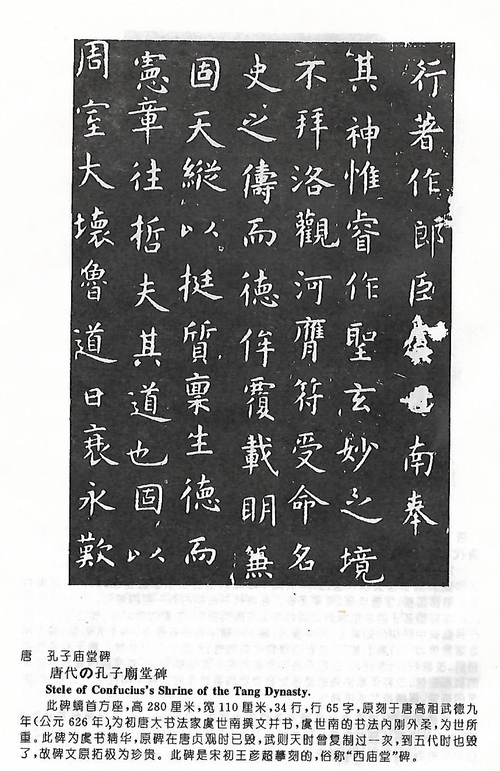 行著作郎臣南奉
其神惟睿作聖玄妙之境
不拜洛觀河膺符受命名
史之儔而德侔覆載明無
固天縱以挺質稟生德而
憲章往哲夫其道也固以
周室大壞魯道日衰永歎
唐　孔子庙堂碑
唐代の孔子廟堂碑
Stele of Confucius's Shrine of the Tang Dynasty.
此碑螭首方座，高 280 厘米，宽 110 厘米，34 行，行 65 字，原刻于唐高祖武德九
年（公元 626 年），为初唐大书法家虞世南撰文并书，虞世南的书法内刚外柔，为世所
重。此碑为虞书精华，原碑在唐贞观时已毁，武则天时曾复制过一次，到五代时也毁
了，故碑文原拓极为珍贵。此碑是宋初王彦超摹刻的，俗称“西庙堂”碑。